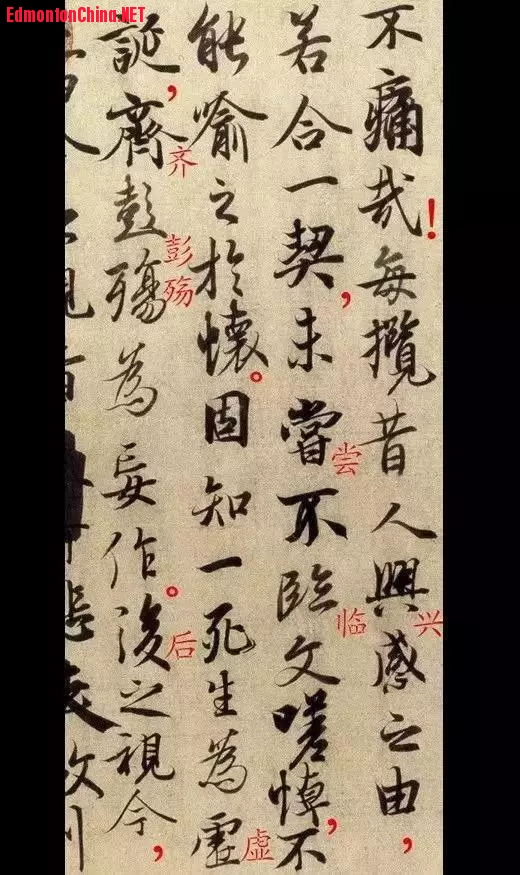 EdmontonChina.NET
不痛哉!每攬昔人興感之由,
兴
若合一契,未嘗不臨文嗟悼,不
尝
临
能喻之於懷。固知一死生為虛
虚
誕,齊彭殤為妄作。後之視今,
齐
彭
殇
后